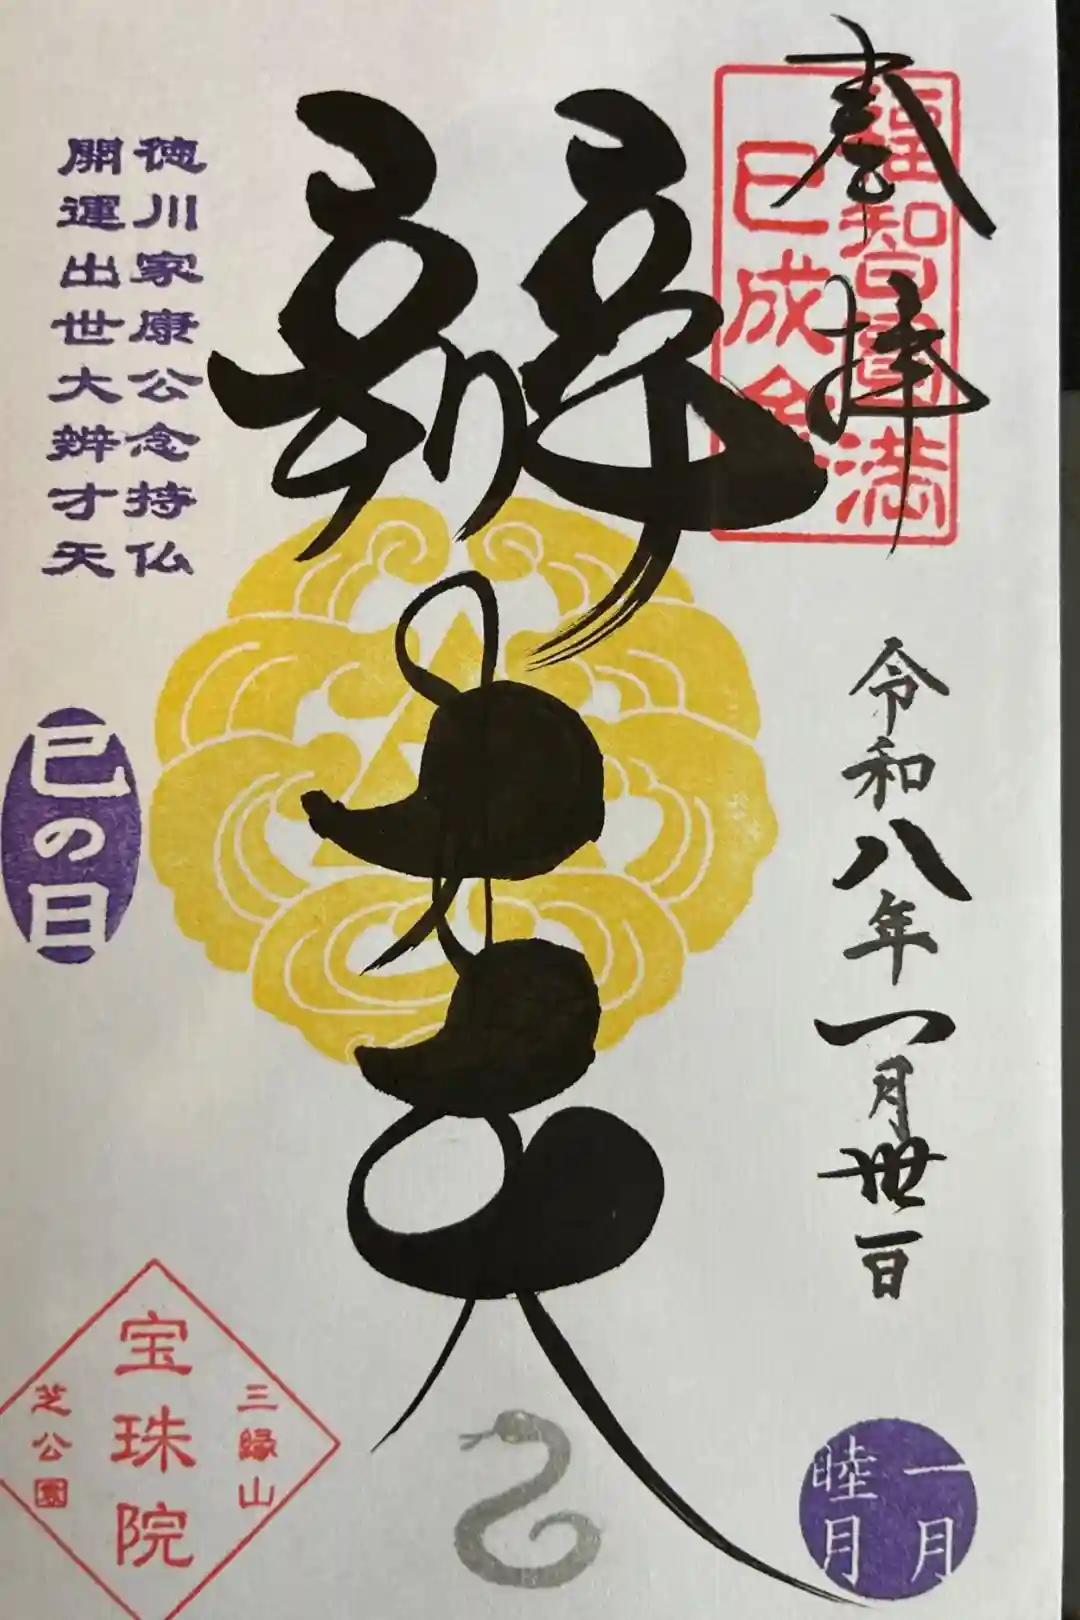 奉拝
福智圓満
巳成金
令和八年一月丗一日
一月
睦月
辨才天
徳川家康公念持仏
開運出世大辨才天
巳の日
三緑山
宝珠院
芝公園